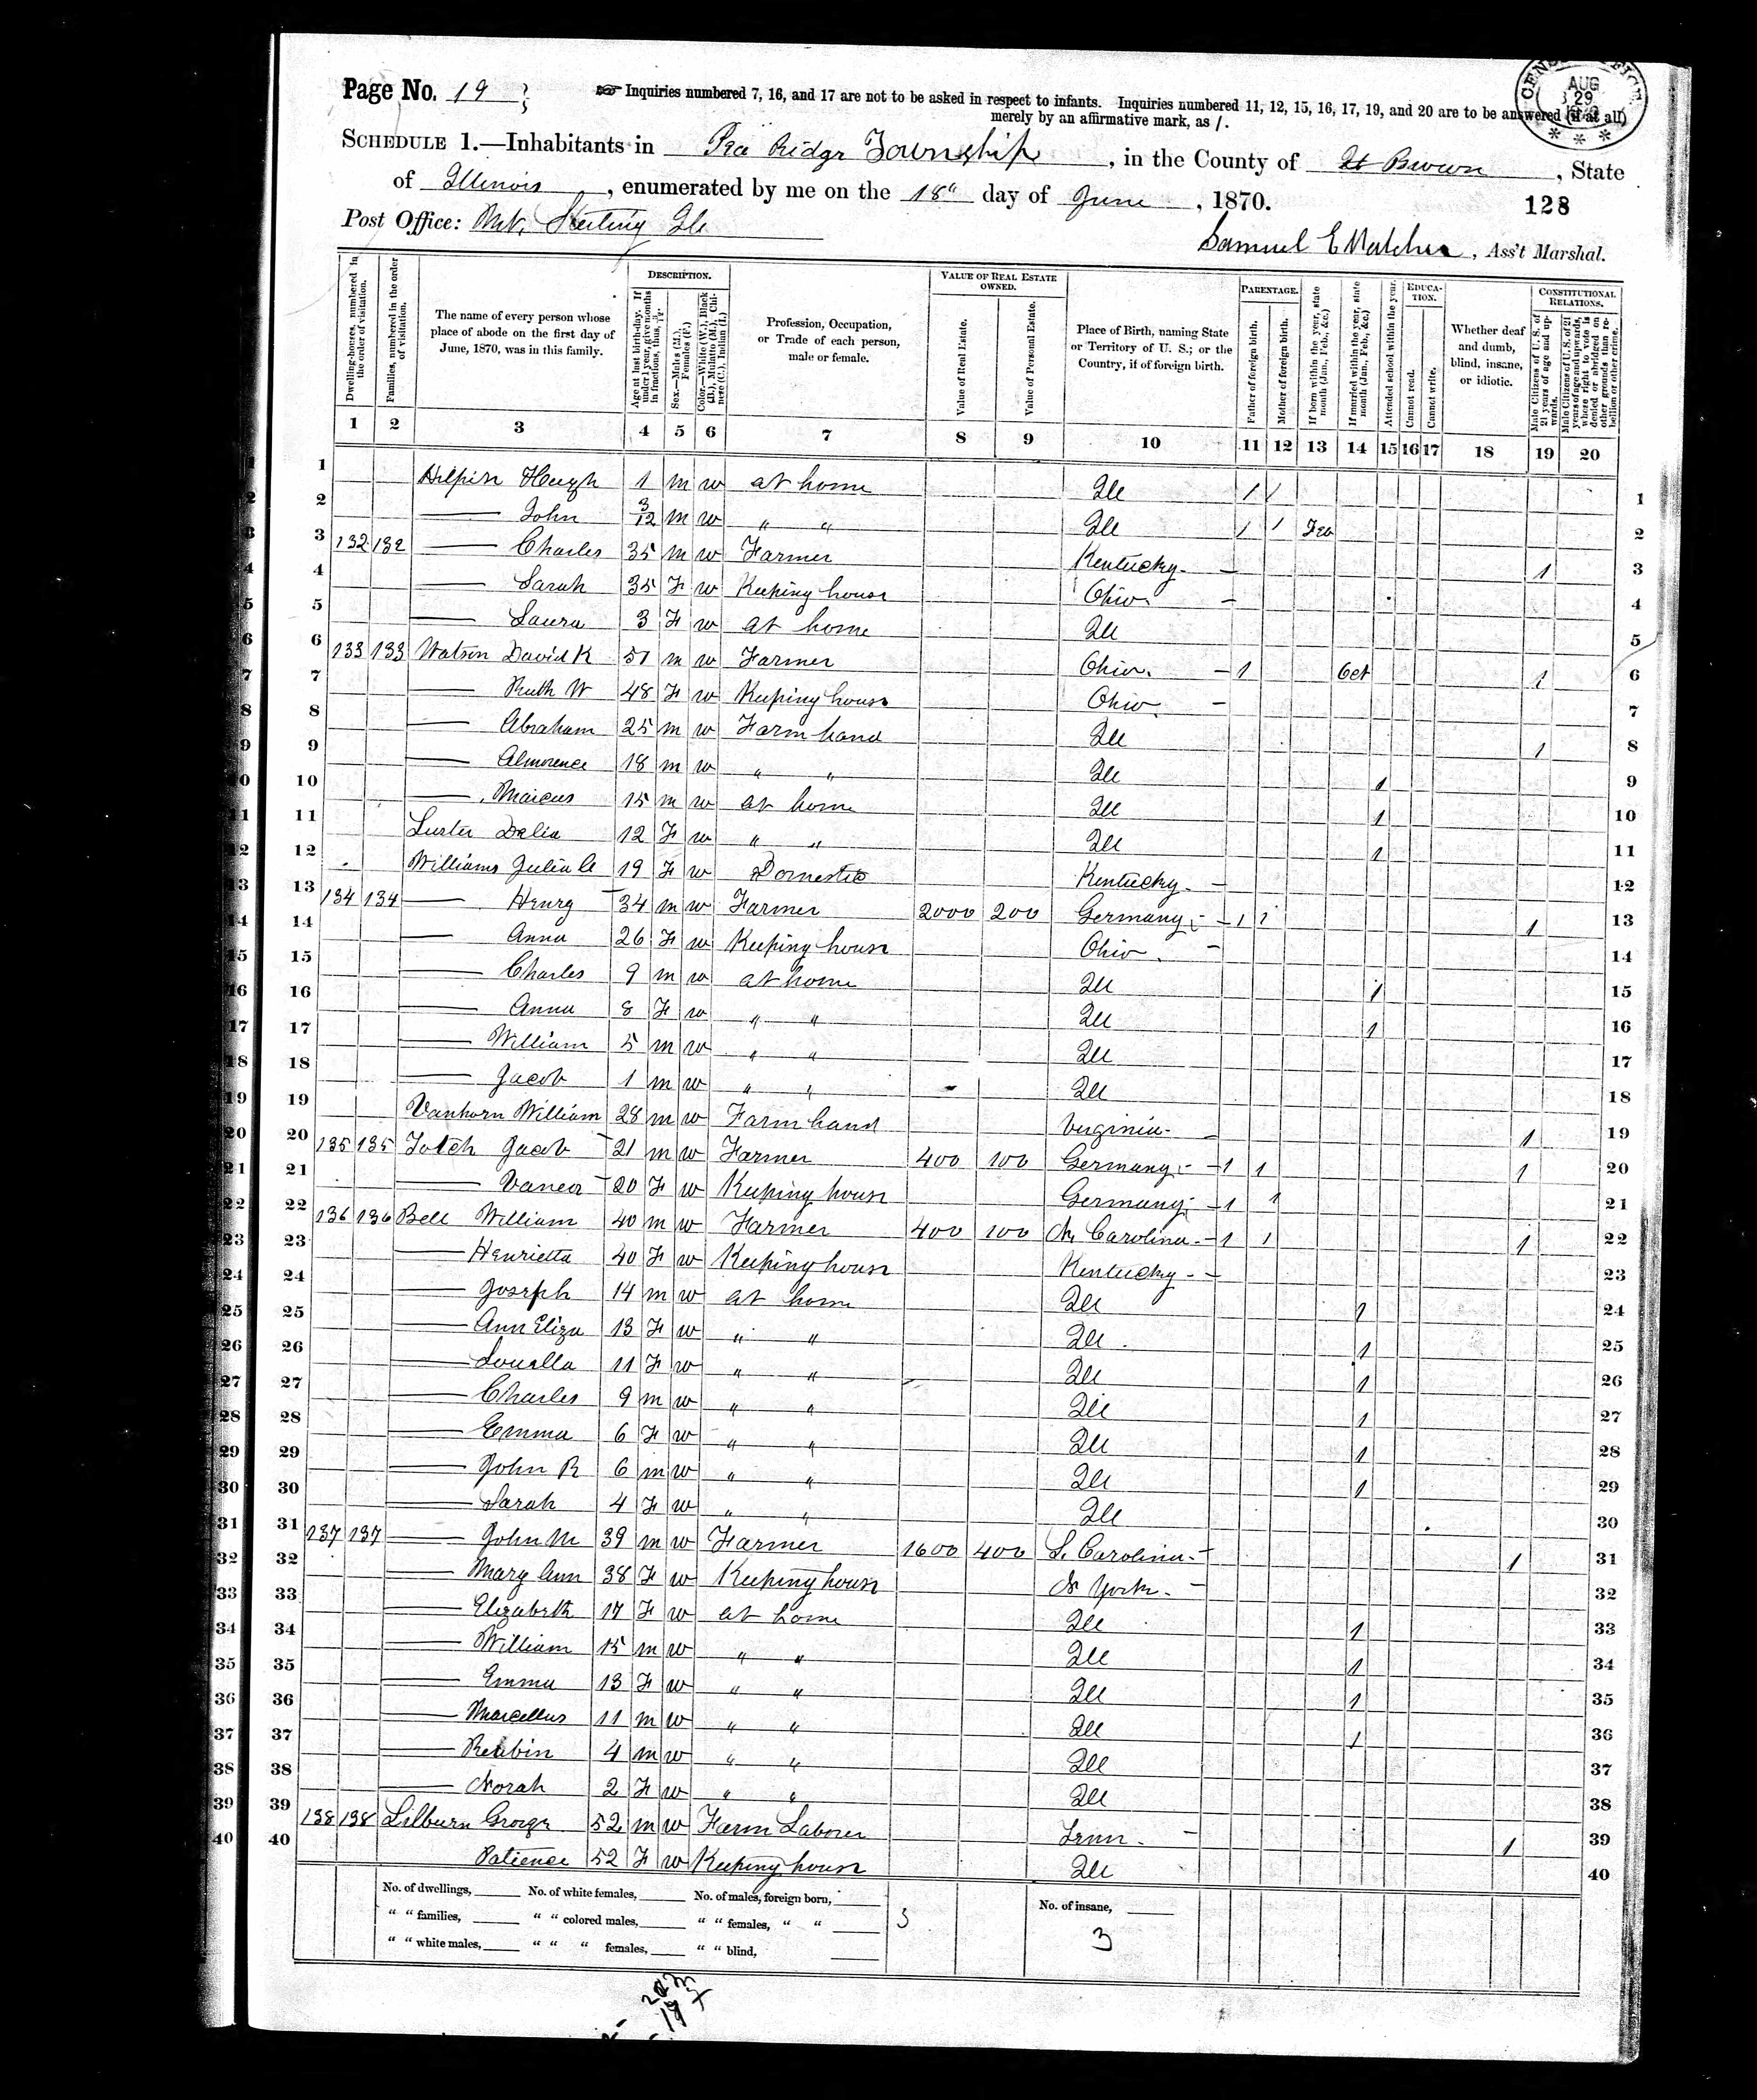 Page No. 19
Inquiries numbered 7, 16, and 17 are not to be asked in respect to infants. Inquiries numbered 11, 12, 15, 16, 17, 19, and 20 are to be answered (if at all)
merely by an affirmative mark, as /.
CENSUS OFFICE AUG 29
SCHEDULE 1.—Inhabitants in Pea Ridge Township, in the County of Brown, State
of Illinois, enumerated by me on the 18" day of June, 1870.
128
Post Office: Mt. Sterling Ill
Samuel E , Ass't Marshal.
Dwelling-houses, numbered in the order of visitation.
Families, numbered in the order of visitation.
The name of every person whose place of abode on the first day of June, 1870, was in this family.
DESCRIPTION.
Age at last birth-day. If under 1 year, give months in fractions, thus, 3/12.
Sex.—Males (M.), Females (F.)
Color.—White (W.), Black (B.), Mulatto (M.), Chinese (C.), Indian (I.)
Profession, Occupation, or Trade of each person, male or female.
VALUE OF REAL ESTATE OWNED.
Value of Real Estate.
Value of Personal Estate.
Place of Birth, naming State or Territory of U. S.; or the Country, if of foreign birth.
PARENTAGE.
Father of foreign birth.
Mother of foreign birth.
If born within the year, state month (Jan., Feb., &c.)
If married within the year, state month (Jan., Feb., &c.)
Attended school within the year.
EDUCATION.
Cannot read.
Cannot write.
Whether deaf and dumb, blind, insane, or idiotic.
CONSTITUTIONAL RELATIONS.
Male Citizens of U. S. of 21 years of age and upwards.
Male Citizens of U. S. of 21 years of age and upwards, where right to vote is denied or abridged on other grounds than rebellion or other crime.
1 2 3 4 5 6 7 8 9 10 11 12 13 14 15 16 17 18 19 20
1 Hugh 1 m w at home Ill 1 1 1
2 — John 3/12 m w " " Ill 1 1 Feb 2
3 132 132 — Charles 35 m w Farmer Kentucky 1 3
4 — Sarah 35 F w Keeping house Ohio 4
5 — Laura 3 F w at home Ill 5
6 133 133 Watson David K 51 m w Farmer Ohio 1 Oct 1 6
7 — Ruth W 48 F w Keeping house Ohio 7
8 — Abraham 25 m w Farm hand Ill 1 8
9 — 18 m w " " Ill 1 9
10 — Marcus 15 m w at home Ill 1 10
11 Luster Delia 12 F w " " Ill 1 11
12 Williams Julia 19 F w Domestic Kentucky 12
13 134 134 — Henry 34 m w Farmer 2000 200 Germany 1 1 1 13
14 — Anna 26 F w Keeping house Ohio 14
15 — Charles 9 m w at home Ill 1 15
16 — Anna 8 F w " " Ill 1 16
17 — William 5 m w " " Ill 17
18 — Jacob 1 m w " " Ill 18
19 Vanhorn William 28 m w Farm hand Virginia 1 19
20 135 135 Jacob 21 m w Farmer 400 100 Germany 1 1 1 20
21 — 20 F w Keeping house Germany 1 1 21
22 136 136 Bell William 40 m w Farmer 400 100 N. Carolina 1 1 1 22
23 — Henrietta 40 F w Keeping house Kentucky 23
24 — Joseph 14 m w at home Ill 1 24
25 — Ann Eliza 13 F w " " Ill 1 25
26 — Louella 11 F w " " Ill 1 26
27 — Charles 9 m w " " Ill 1 27
28 — Emma 6 F w " " Ill 1 28
29 — John R 6 m w " " Ill 1 29
30 — Sarah 4 F w " " Ill 30
31 137 137 — John M 39 m w Farmer 1600 400 S. Carolina 1 31
32 — Mary Ann 38 F w Keeping house N York 32
33 — Elizabeth 17 F w at home Ill 1 33
34 — William 15 m w " " Ill 1 34
35 — Emma 13 F w " " Ill 1 35
36 — Marcellus 11 m w " " Ill 1 36
37 — Reubin 4 m w " " Ill 37
38 — Norah 2 F w " " Ill 38
39 138 138 Lilburn George 52 m w Farm Laborer Tenn 1 39
40 Patience 52 F w Keeping house Ill 40
No. of dwellings, No. of white females, No. of males, foreign born, No. of insane,
" " families, " " colored males, " " females, " " 3
" " white males, " " " females, " " blind, 3